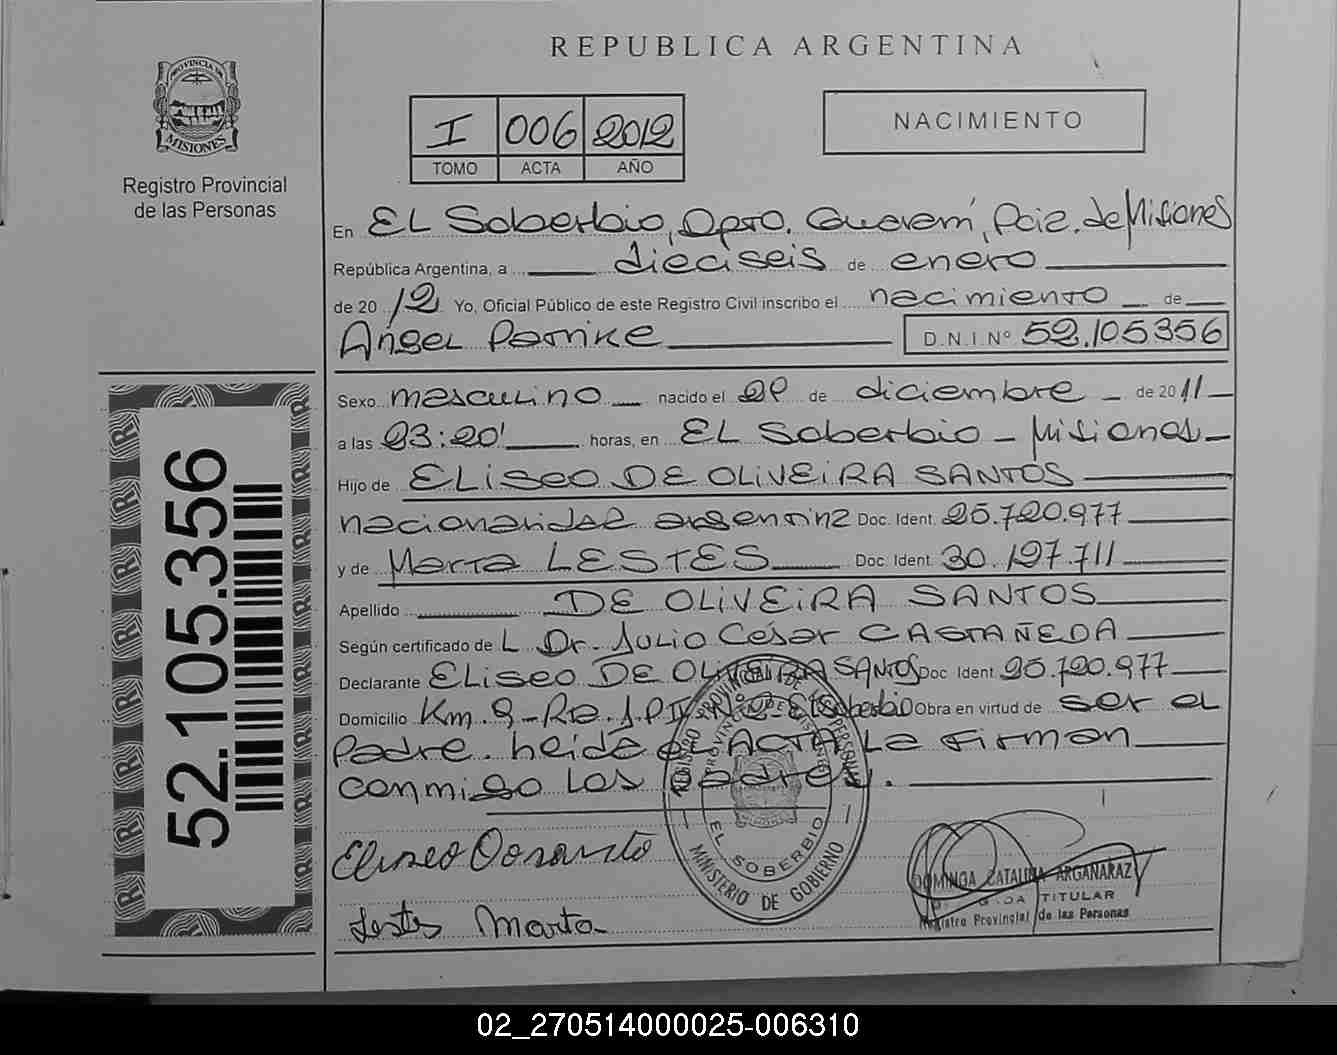 REPUBLICA ARGENTINA
PROVINCIA DE
MISIONES
Registro Provincial
de las Personas
I 006 2012
TOMO ACTA AÑO
NACIMIENTO
En EL Soberbio, Dpto. Guaraní, Pcia. de Misiones
República Argentina, a dieciseis de enero
de 20 12 Yo, Oficial Público de este Registro Civil inscribo el nacimiento de
Angel D.N.I.Nº 52.105356
Sexo masculino nacido el de diciembre de 2011
a las 23:20' horas, en EL Soberbio - Misiones
Hijo de ELiseo DE OLiVEiRA SANTOS
nacionalidad argentina Doc. Ident. 25.720.977
y de Marta LESTES Doc. Ident. 30.197.711
Apellido DE OLiVEiRA SANTOS
Según certificado de L Dr. Julio César CASTAÑEDA
Declarante ELiseo DE OLiVEiRA SANTOS Doc Ident. 25.720.977
Domicilio Km. 9 - Nº 2 - El Soberbio Obra en virtud de ser el
Padre. Leida el ACTA La Firman
conmigo Los padres.
52.105.356
REGISTRO PROVINCIAL DE LAS PERSONAS
PROVINCIA DE MISIONES
EL SOBERBIO
MINISTERIO DE GOBIERNO
Eliseo
Lestes Marta
DOMINGA CATALINA ARGAÑARAZ
TITULAR
Registro Provincial de las Personas
02_270514000025-006310